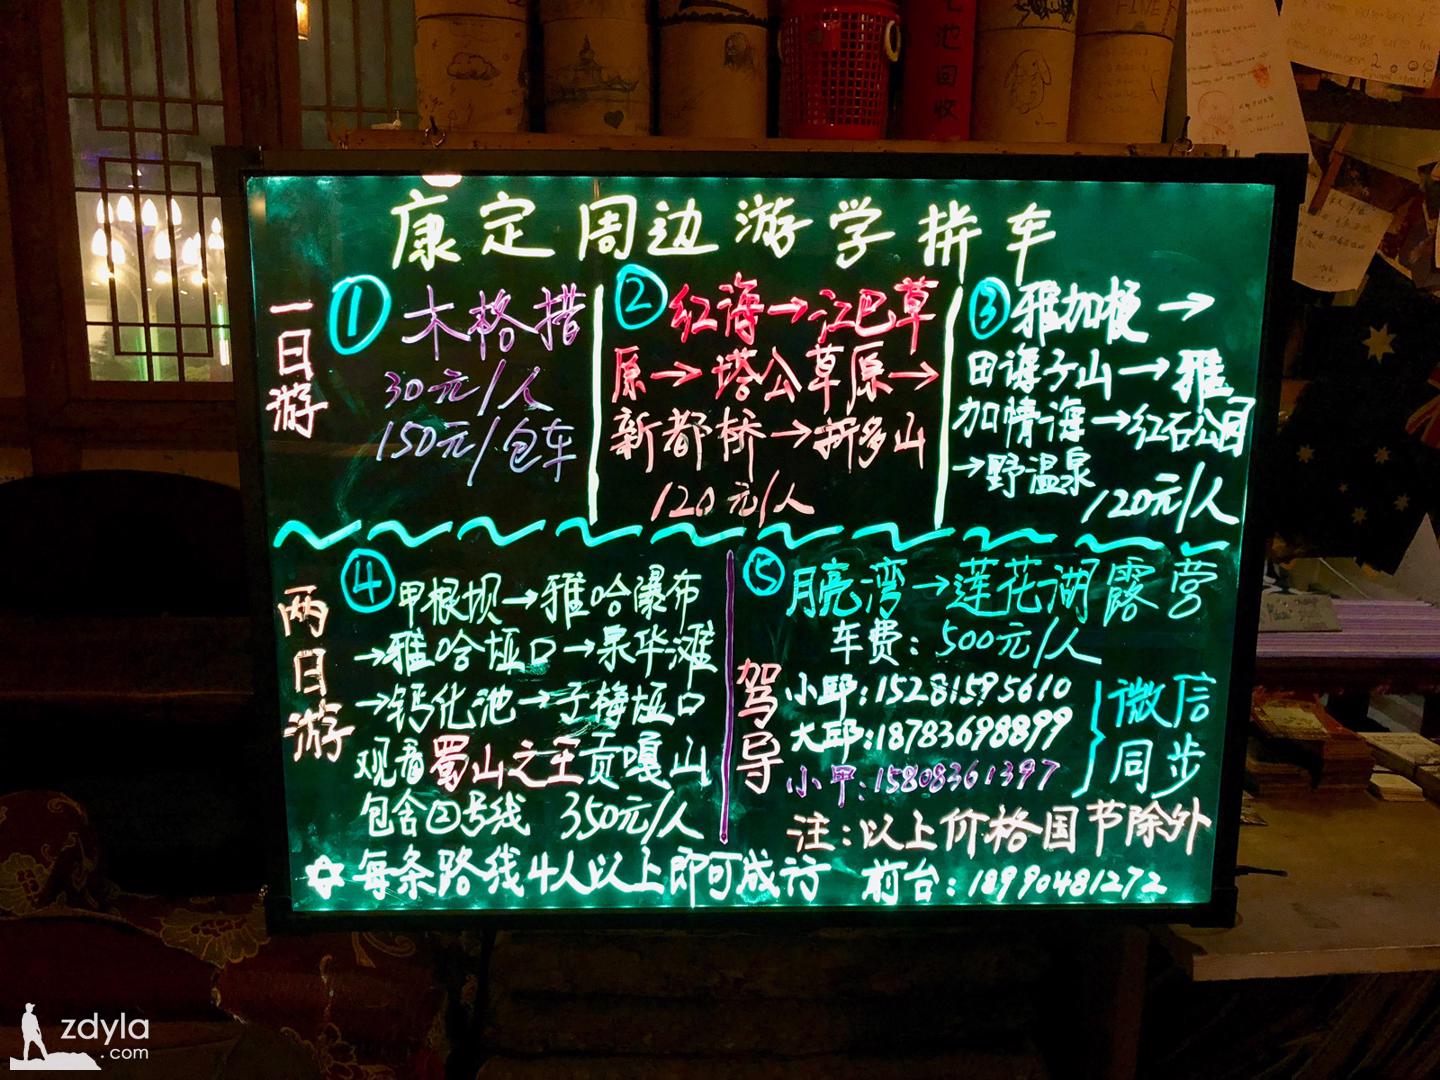 康定周边游学拼车
一日游
① 木格措
30元/人
150元/包车
② 红海→江巴草
原→塔公草原→
新都桥→折多山
120元/人
③ 雅加梗→
田海子山→雅
加情海→红石公园
→野温泉
120元/人
两日游
④ 甲根坝→雅哈瀑布
→雅哈垭口→泉华滩
→钙化池→子梅垭口
观看蜀山之王贡嘎山
包含②号线 350元/人
⑤ 月亮湾→莲花湖露营
车费：500元/人
驾导
小邱:15281595610
大邱:18783698899
小甲:15808361397
微信
同步
注：以上价格国节除外
☆每条路线4人以上即可成行 前台：18990481272
池回收
FIVE
zdyla
.com